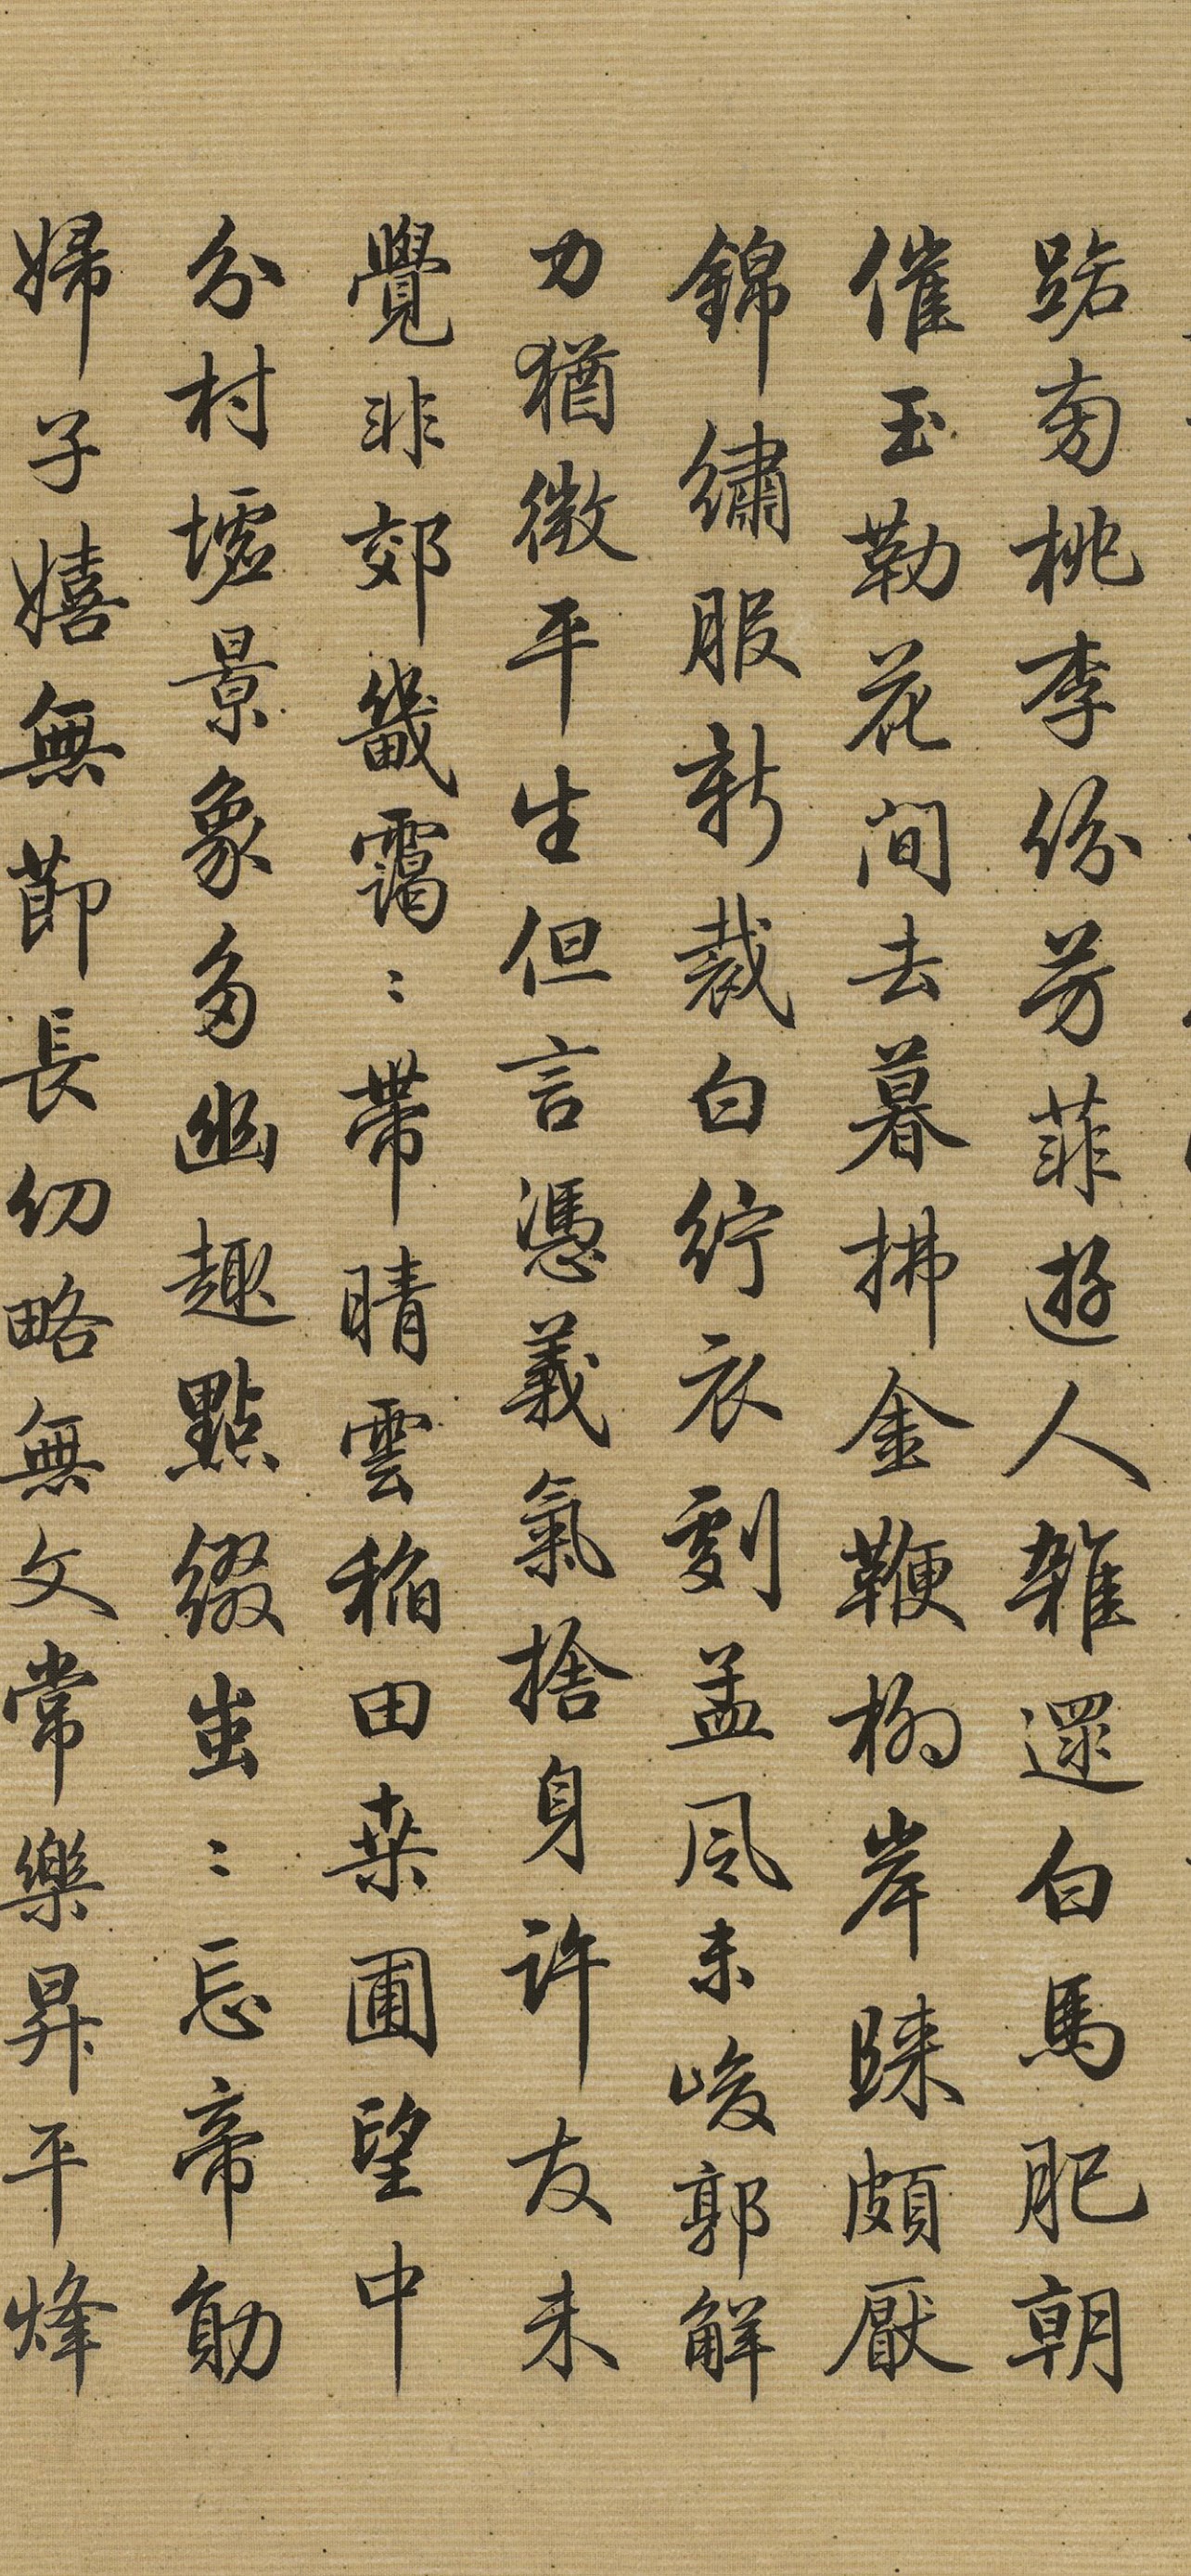 踞匈桃李份芳菲遊人雜還白馬肥朝
催玉勒花間去暮拂金鞭柳岸歸頗厭
錦繡服新裁白紵衣劇孟風未峻郭解
力猶微平生但言憑義氣捨身許友未
覺非郊畿靄〻帶晴雲稻田桑圃望中
分村墟景象多幽趣點綴蚩〻忘帝勛
婦子嬉無節長幼略無文常樂昇平烽